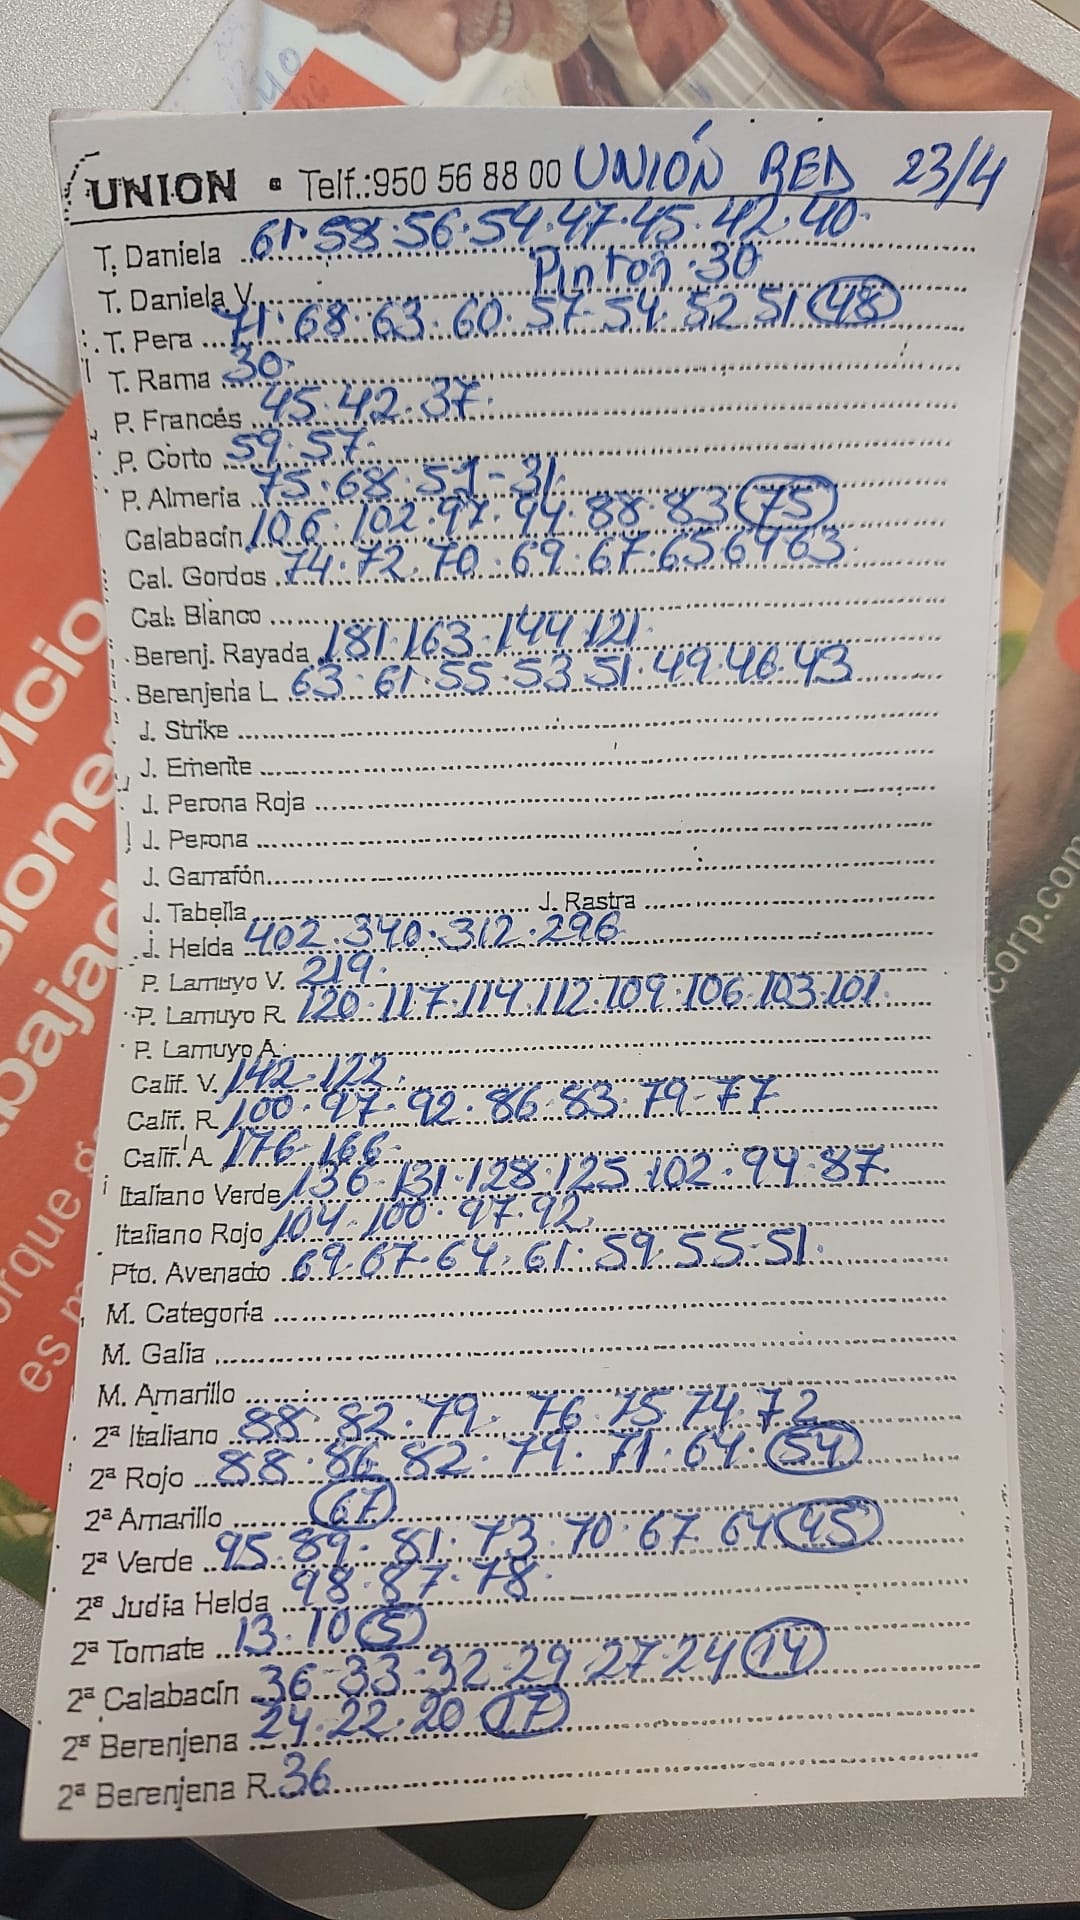 UNION • Telf.:950 56 88 00 UNIÓN RED 23/4
T. Daniela 61·58·56·54·47·45·42·40·
T. Daniela V. Pinton·30
T. Pera 71·68·63·60·57·54·52 51 48
T. Rama 30·
P. Francés 45·42·37·
P. Corto 59·57·
P. Almeria 75·68·51-31·
Calabacín 106·102·97·94·88·83 75
Cal. Gordos 74·72·70·69·67·65 64 63·
Cal. Blanco
Berenj. Rayada 181·163·144 121·
Berenjena L 63·61·55·53 51·49·46·43
J. Strike
J. Emerite
J. Perona Roja
J. Perona
J. Garrafón
J. Tabella J. Rastra
J. Helda 402·340·312·296·
P. Lamuyo V. 219·
P. Lamuyo R. 120·117·114·112·109·106·103·101·
P. Lamuyo A.
Calif. V. 142-122·
Calif. R 100·97·92·86·83·79-77
Calif. A 176-166·
Italiano Verde 136·131·128·125·102·94·87·
Italiano Rojo 104-100·97·92·
Pto. Avenado 69·67·64·61·59·55·51·
M. Categoría
M. Galia
M. Amarillo
2ª Italiano 88·82·79·76·75 74·72
2ª Rojo 88·86 82·79·71·64· 54
2ª Amarillo 67
2ª Verde 95·89·81·73·70·67 64 45
2ª Judia Helda 98·87·78·
2ª Tomate 13·10 5
2ª Calabacín 36-33·32·29 27·24 14
2ª Berenjena 24·22·20 17
2ª Berenjena R. 36
vicio
siones
bajad
orque g
es m
corp.com